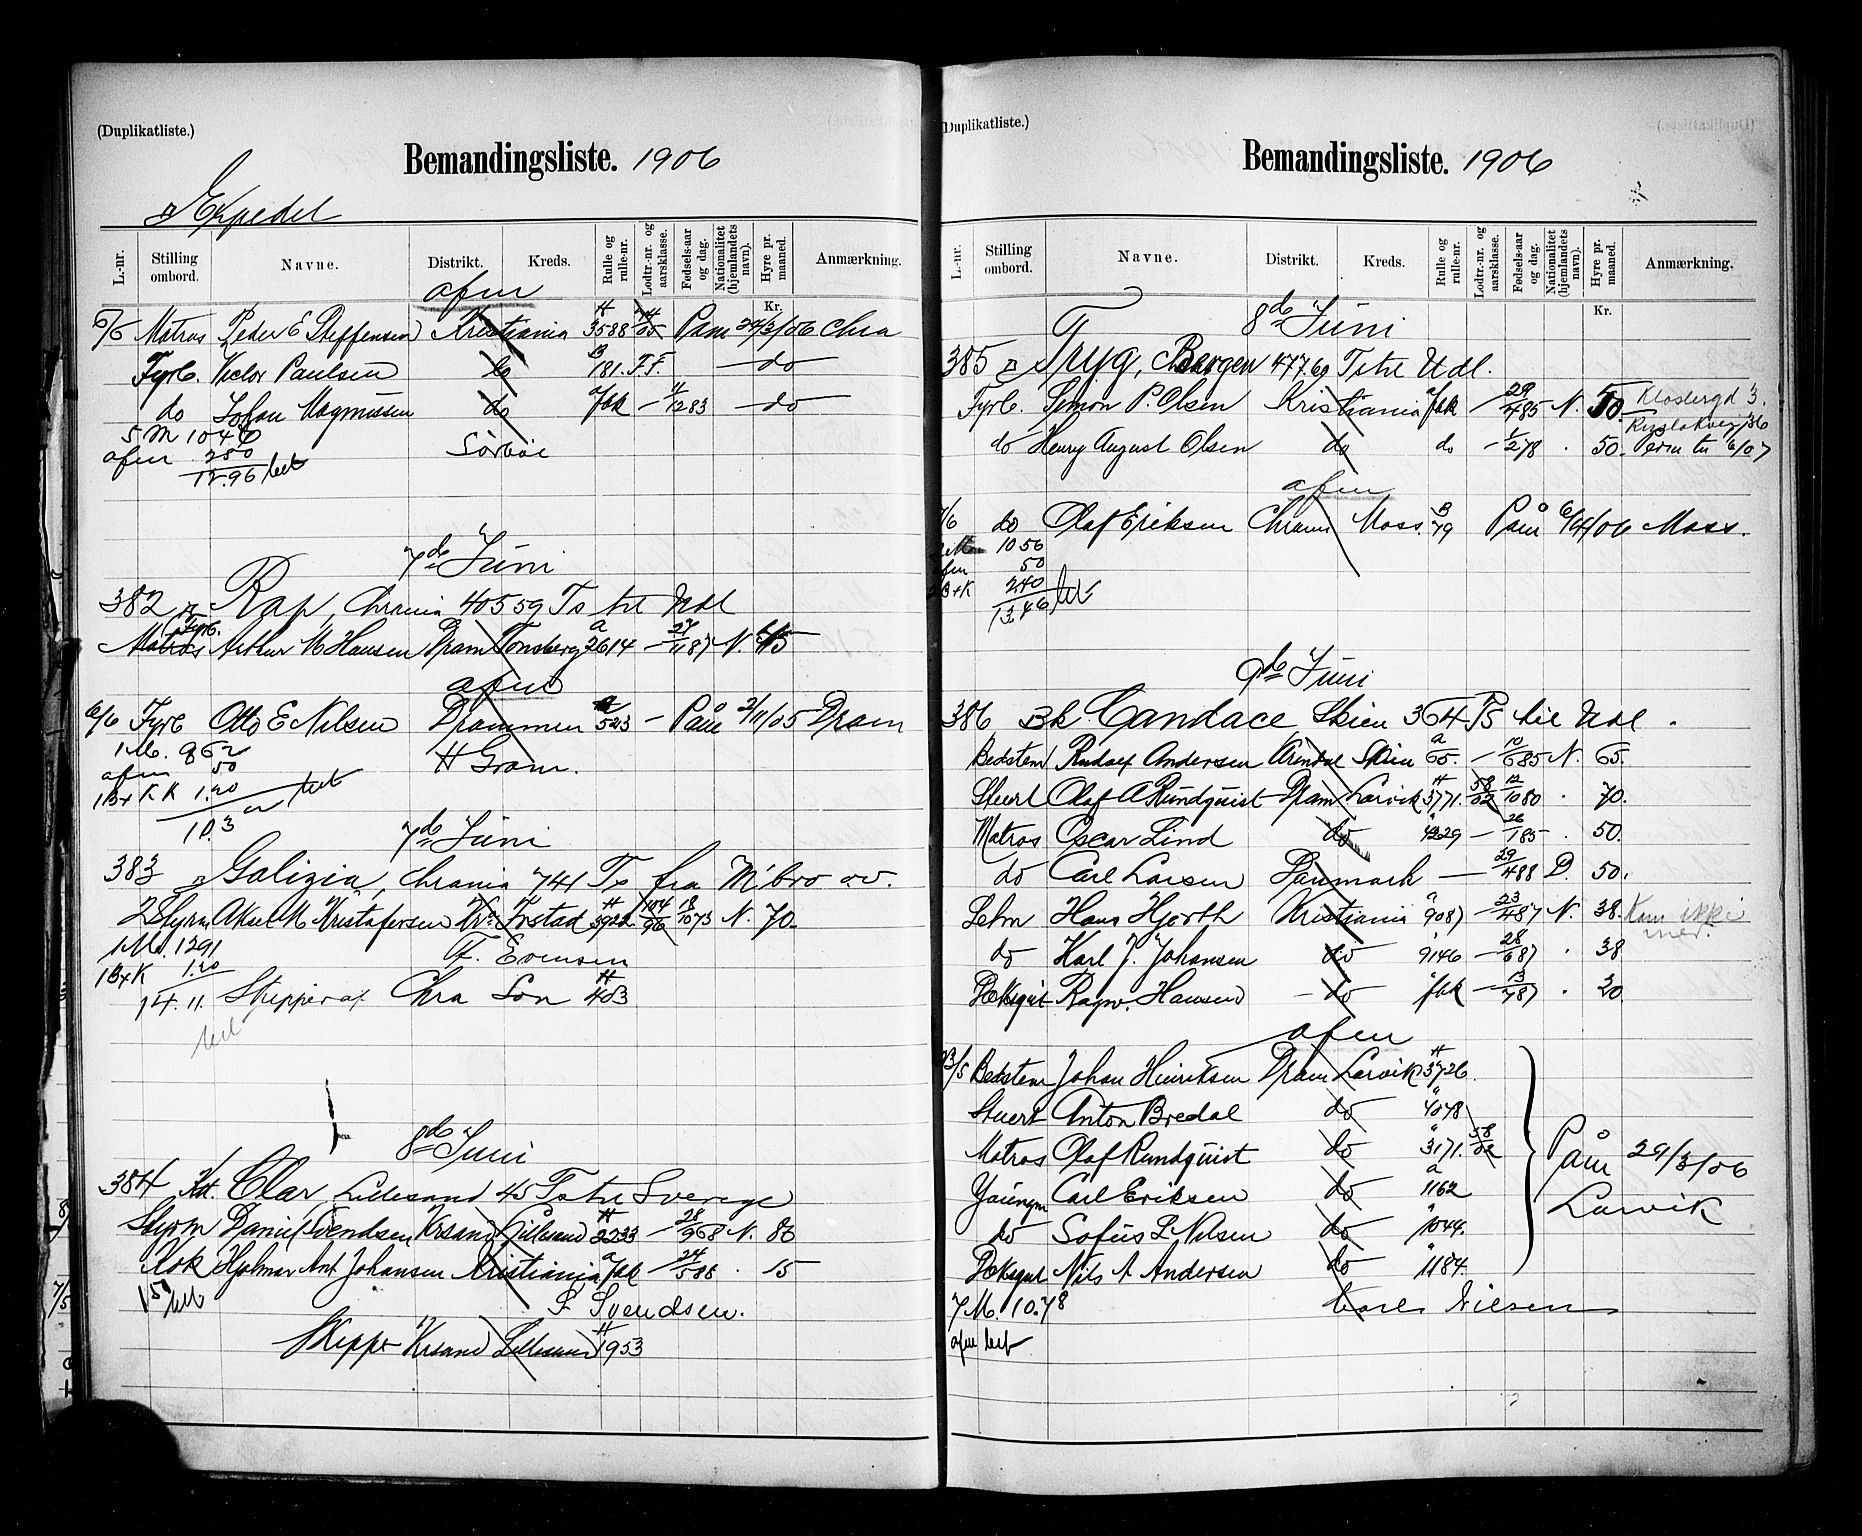 (Duplikatliste.)
Bemandingsliste. 1906
Expedit
L.-nr. Stilling ombord. Navne. Distrikt. Kreds. Rulle og rulle-nr. Lodtr.-nr. og aarsklasse. Fødsels-aar og dag. Nationalitet (hjemlandets navn). Hyre pr. maaned. Anmærkning.
afm
Kr.
6/6 Matros Peder E Steffensen Kristiania H 3588 Påm 24/3/06 Chra
Fyrb. Victor Paulsen do B 181. F.F. — do
do Johan Magnussen do fbk — 4/12 83 — do
5 M 10 40
afm 2 50 Sörböe
12.96 bet
7de Juni
382 Rap, Chrania 405 59 Ts til Udl
Fyrb.
Matros Arthur M Hansen Dram Tonsberg a 2614 — 27/11 87 N. 45
afm
6/6 Fyrb Otto E Nilsen Drammen a 523 — Påm 2/11/05 Dram
1 M. 962
afm 50 H Gram.
1 B+K K 1.20
10.3 bet
7de Juni
383 Galizia, Chrania 741 Ts fra M'bro o.v.
2 Styrm Aksel M Kristofersen Kr. Frstad H 3922 104/96 18/10 73 N. 70.
1 M. 1291 F. Evensen
1 B+K 1.20
14.11. Skipper af Chra Son H 483
bet
8de Juni
384 Kt. Clar, Lillesand 45 Ts til Sverige
Styrm Daniel Svendsen Krsand Lillesand H 2233 — 28/9 68 N. 80
Kok Hjalmar Ant Johansen Kristiania a fbk — 24/5 88 . 15
150 bet S. Svendsen.
Skipper Krsand Lillesand H 1953
(Duplikatliste.)
Bemandingsliste. 1906
L.-nr. Stilling ombord. Navne. Distrikt. Kreds. Rulle og rulle-nr. Lodtr.-nr. og aarsklasse. Fødsels-aar og dag. Nationalitet (hjemlandets navn). Hyre pr. maaned. Anmærkning.
Kr.
8de Juni
385 Tryg, Bergen 477.60 Ts til Udl.
Fyrb. Simon P. Olsen Kristiania fbk — 29/4 85 N. 50. Klostergd 3.
do Henry August Olsen do do — 1/2 78 . 50.
afm
7/6 do Olaf Eriksen Chrania Moss. B 79 Påm 6/4/06 Moss.
10 56
afm 50
B+K 240
13.46 bet
9de Juni
386 Bk Candace Skien 364 Ts til Udl.
Bedstem Rudolf Andersen Arendal Skien a 65. — 10/6 85 N. 65.
Stuert Olaf A Rundquist Dram Larvik H 3171. 58/02 12/10 80 . 70.
Matros Oscar Lind do " 4229 — 26/1 85 . 50.
do Carl Larsen Danmark — 29/4 88 D. 50.
Letm Hans Hjorth Kristiania a 9087 — 23/4 87 N. 38. Kom ikke med.
do Karl J. Johansen do " 9146 — 28/6 87 . 38
Dæksgut Ragnv. Hansen — do " fbk — 13/7 87 . 20
afm
23/5 Bedstem Johan Hinriksen Dram Larvik H 3726.
Stuert Anton Bredal do " 4078
Matros Olaf Rundquist do " 3171. 58/02 Påm 29/3/06
Youngm Carl Eriksen do a 1162
do Sofus L Nilsen do " 1044. Larvik
Dæksgut Nils A Andersen do " 1184.
7 M. 10.78 Carl Nilsen
afm bet